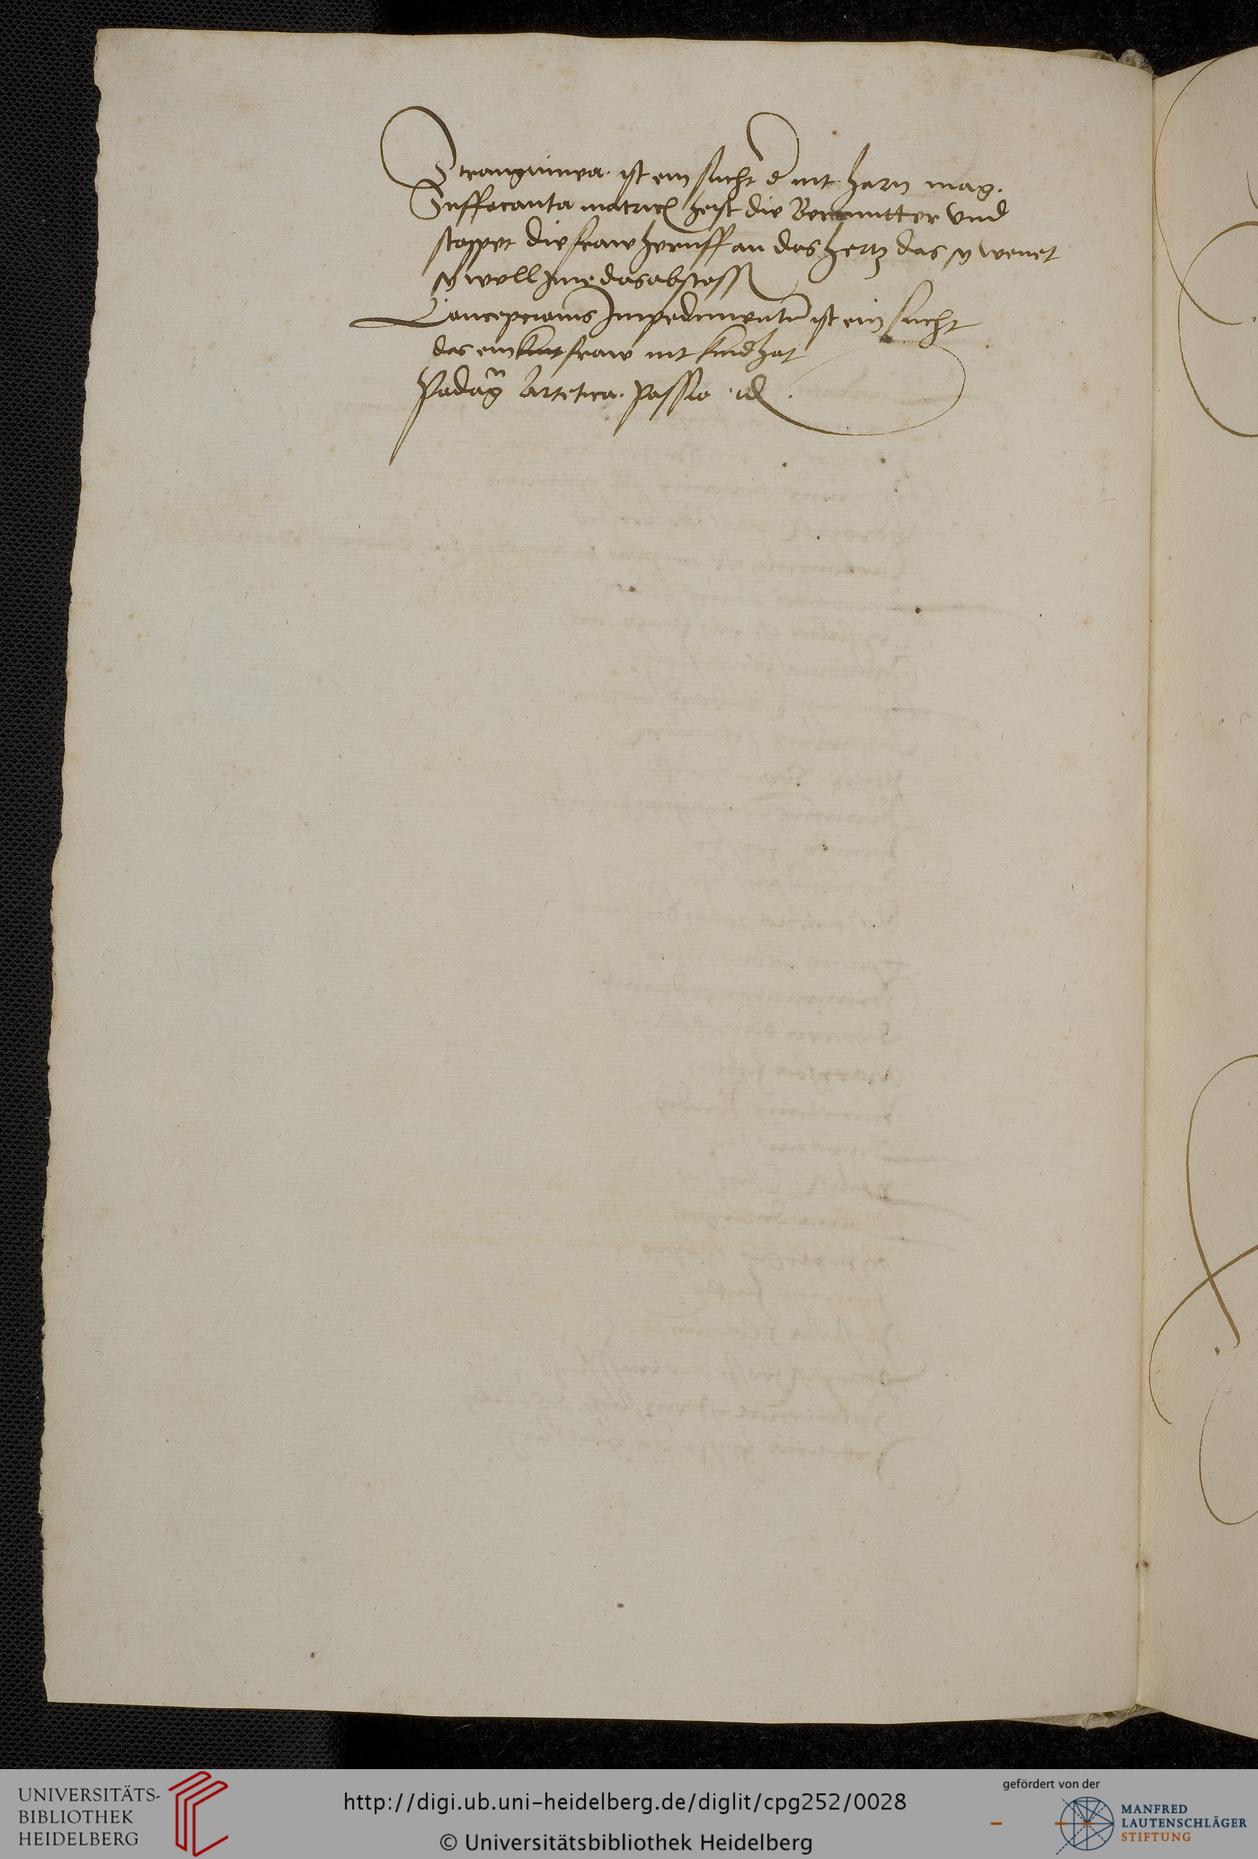 Strangwinea. ist ein sucht d nit harn mag.
Suffocanta matricis heist die Bermutter vnd
stopper die fraw heruff an das hertz das sy wenet
sy well Jme das abstossen
Concepcionis Impedimentu ist ein sucht
das ein kint fraw nit kind hat
Artetica. Passio id
UNIVERSITÄTS-
BIBLIOTHEK
HEIDELBERG
http://digi.ub.uni-heidelberg.de/diglit/cpg252/0028
© Universitätsbibliothek Heidelberg
gefördert von der
MANFRED
LAUTENSCHLÄGER
STIFTUNG